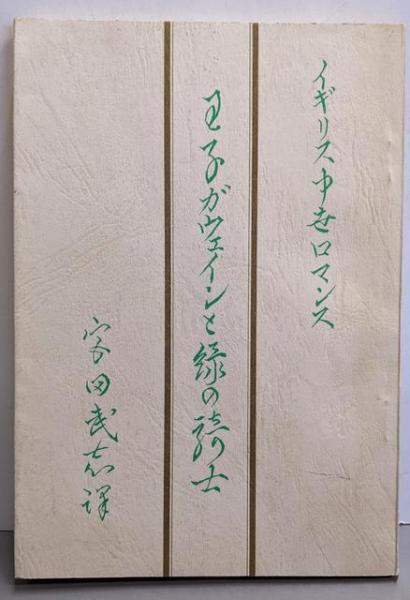 イギリス中世ロマンス
王子ガウェインと緑の騎士
宮田武志訳